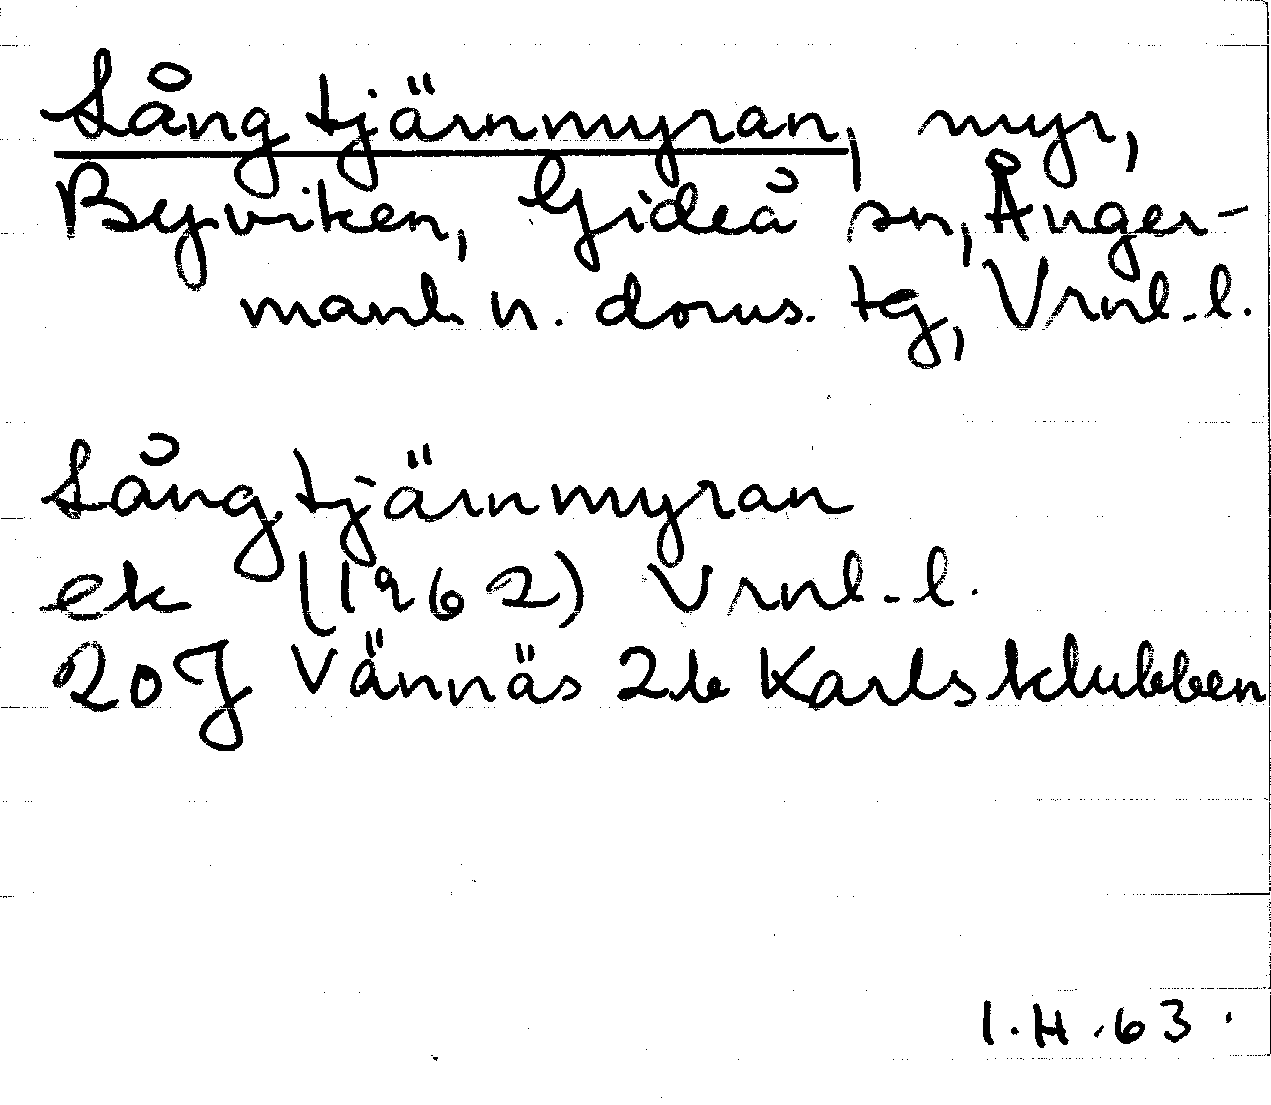 Långtjärnmyran, myr,
Byviken, Gideå sn, Ånger-
manl. n. doms. tg, Vrnl. l.
Långtjärnmyran
ek (1962) Vrnl. l.
20J Vännäs 2b Karlsklubben
I.H. 63.